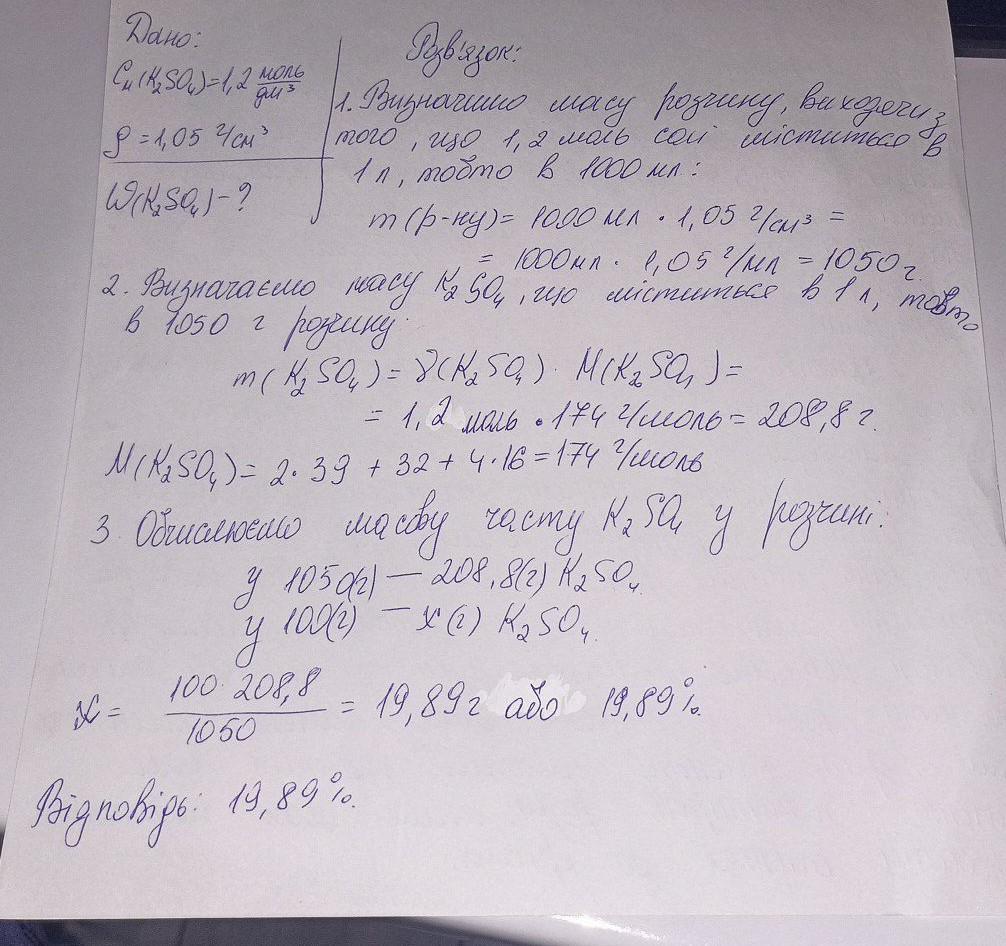 Дано:
Cм(K₂SO₄)=1,2 моль/дм³
ρ=1,05 г/см³
W(K₂SO₄)-?
Розв'язок:
1. Визначимо масу розчину, виходячи з
того, що 1,2 моль солі міститься в
1 л, тобто в 1000 мл:
m(р-ну)= 1000 мл · 1,05 г/см³ =
= 1000 мл · 1,05 г/мл = 1050 г.
2. Визначаємо масу K₂SO₄, що міститься в 1 л, тобто
в 1050 г розчину.
m(K₂SO₄)=γ(K₂SO₄)· M(K₂SO₄)=
= 1,2 моль · 174 г/моль = 208,8 г.
M(K₂SO₄)= 2·39 + 32 + 4·16 = 174 г/моль
3. Обчислюємо масову часту K₂SO₄ у розчині:
у 1050(г) — 208,8(г) K₂SO₄.
у 100(г) — x(г) K₂SO₄.
x = 100·208,8/1050 = 19,89 г або 19,89%.
Відповідь: 19,89%.